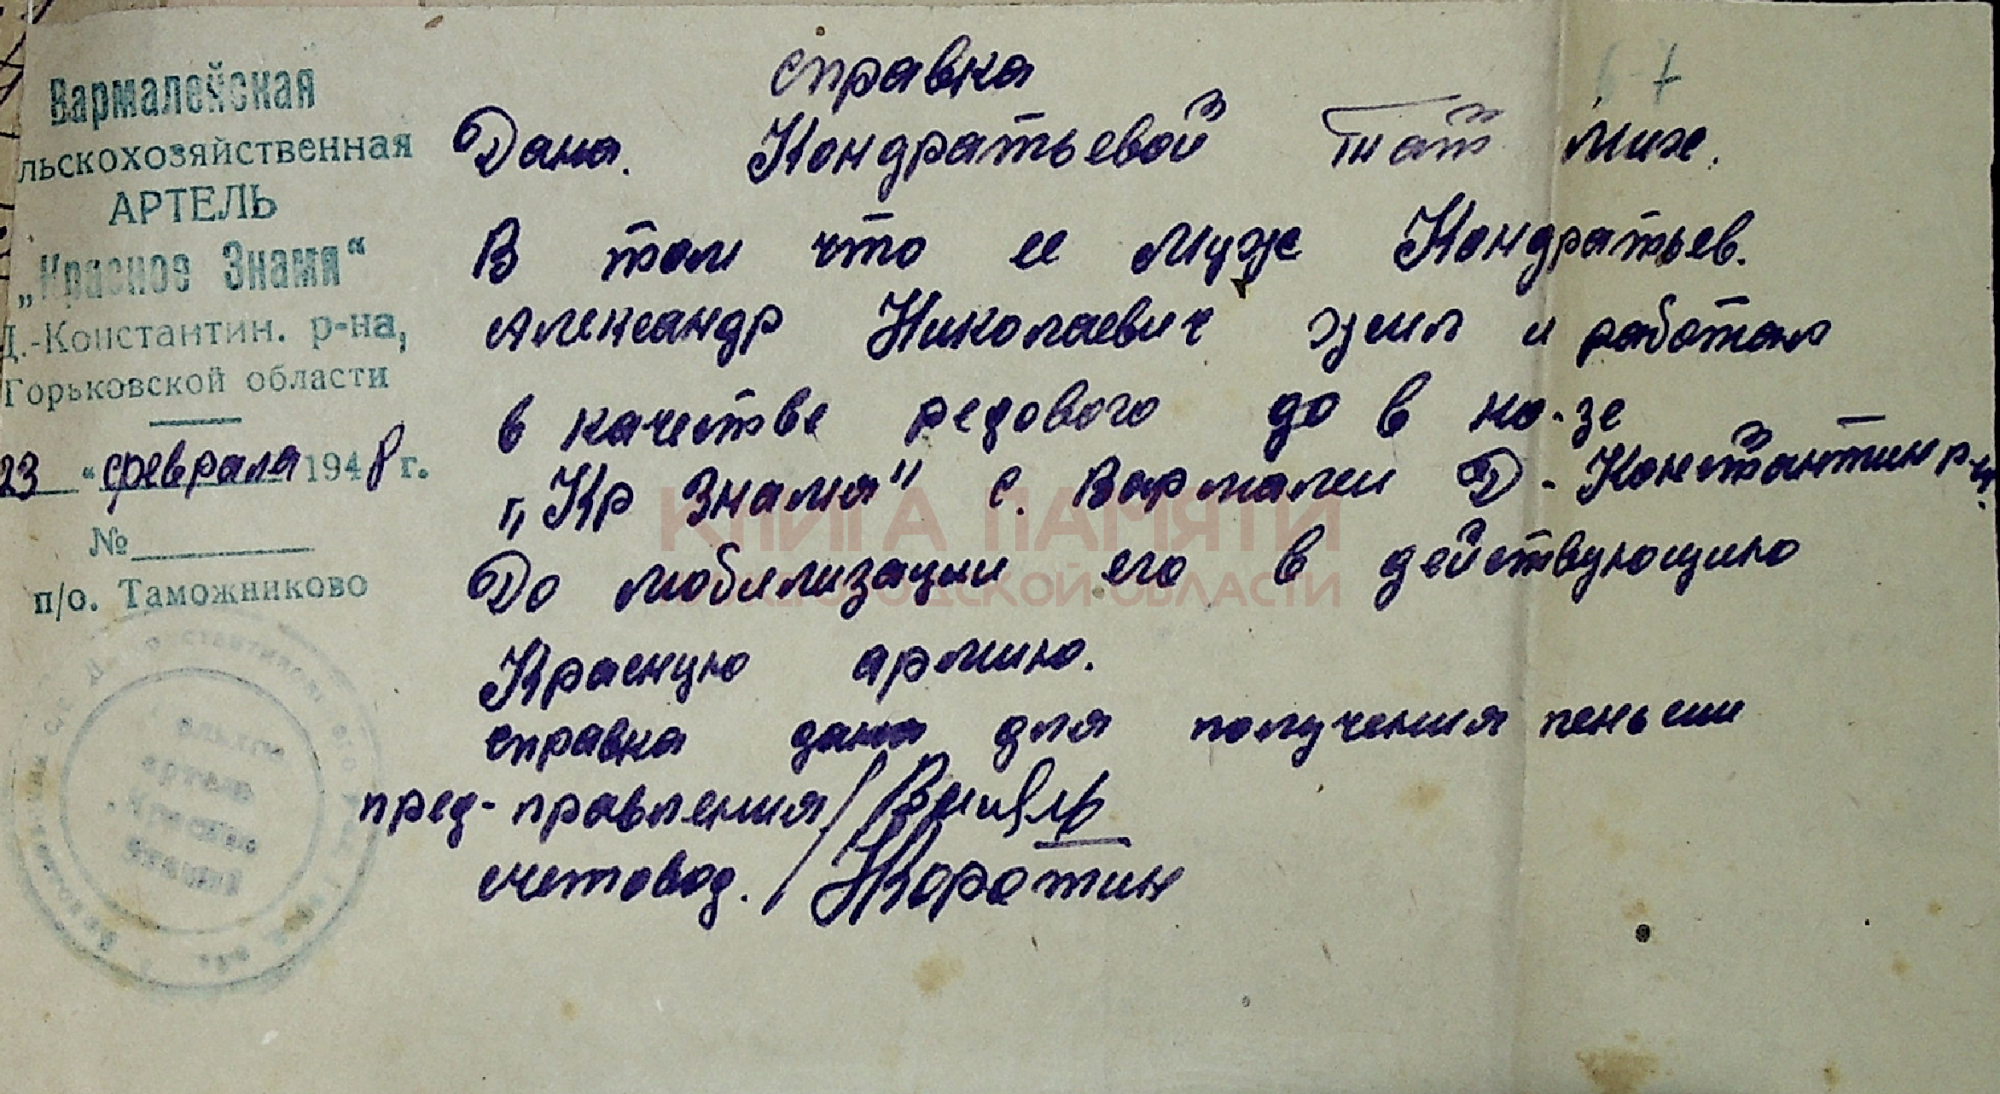 Вармалейская
льскохозяйственная
АРТЕЛЬ
„Красное Знамя“
Д.-Константин. р-на,
Горьковской области
23 " февраля 1948 г.
№
п/о. Таможниково
справка
Дана. Кондратьевой Тат Мих.
В том что ее муж Кондратьев.
Александр Николаевич жил и работал
в качестве редового до в ко-зе
„Кр Знамя" с. Вармалеи Д-Константин р-н.
До мобилизации его в действующию
Красную армию.
справка дана для получения пеньсии
пред-правления/
счетовод. / Коротин
КНИГА ПАМЯТИ
НИЖЕГОРОДСКОЙ ОБЛАСТИ